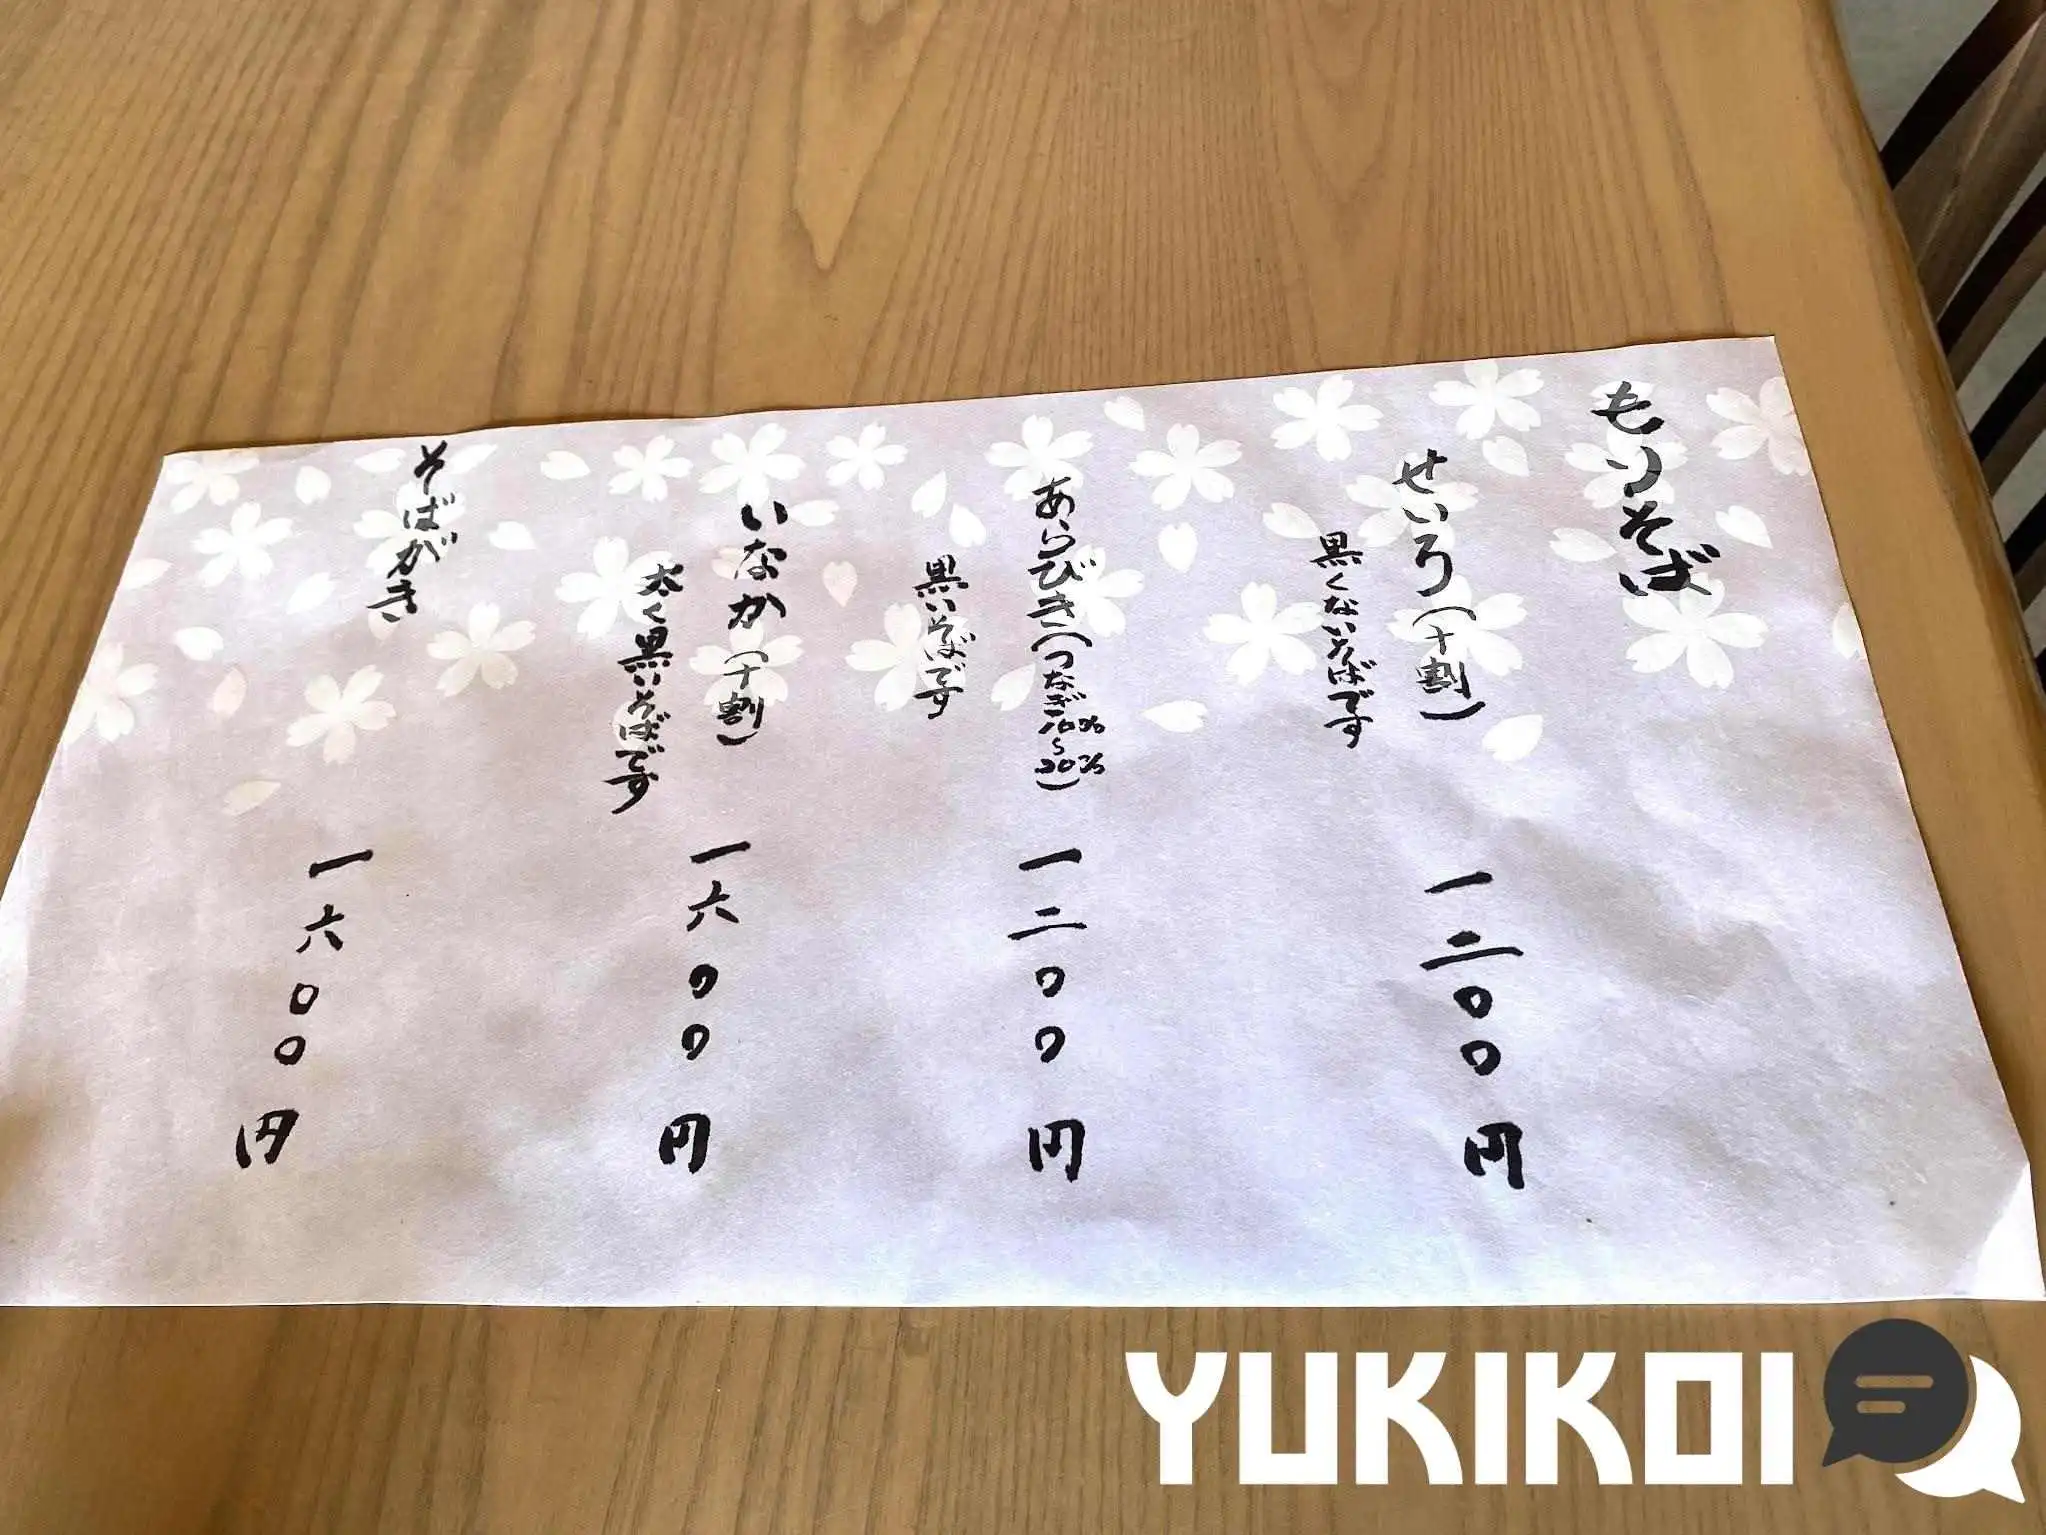 もりそば
せいろ(十割) 一二〇〇円
黒くないそばです
あらびき(つなぎ10%〜20%) 一二〇〇円
黒いそばです
いなか(十割) 一六〇〇円
太く黒いそばです
そばがき 一六〇〇円
YUKIKOI